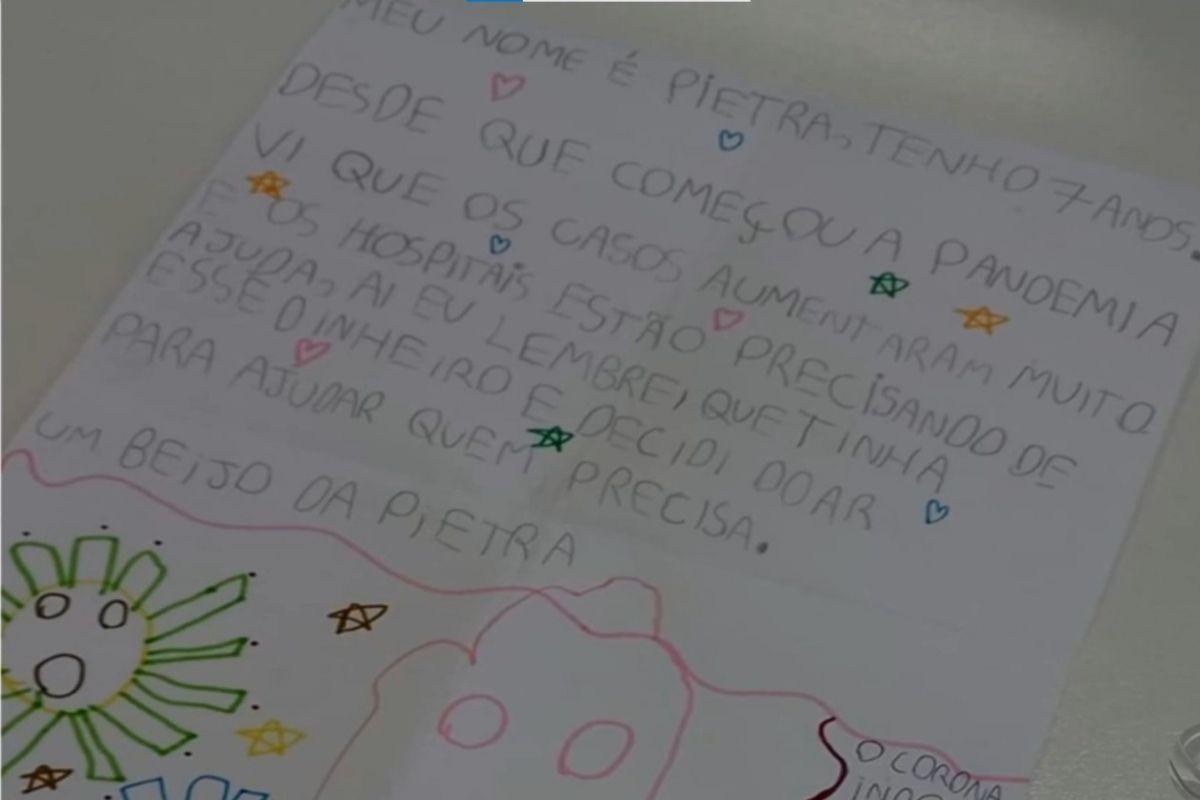 MEU NOME É PIETRA, TENHO 7 ANOS.
DESDE QUE COMEÇOU A PANDEMIA
VI QUE OS CASOS AUMENTARAM MUITO
E OS HOSPITAIS ESTÃO PRECISANDO DE
AJUDA, AI EU LEMBREI QUE TINHA
ESSE DINHEIRO E DECIDI DOAR
PARA AJUDAR QUEM PRECISA.
UM BEIJO DA PIETRA
O CORONA